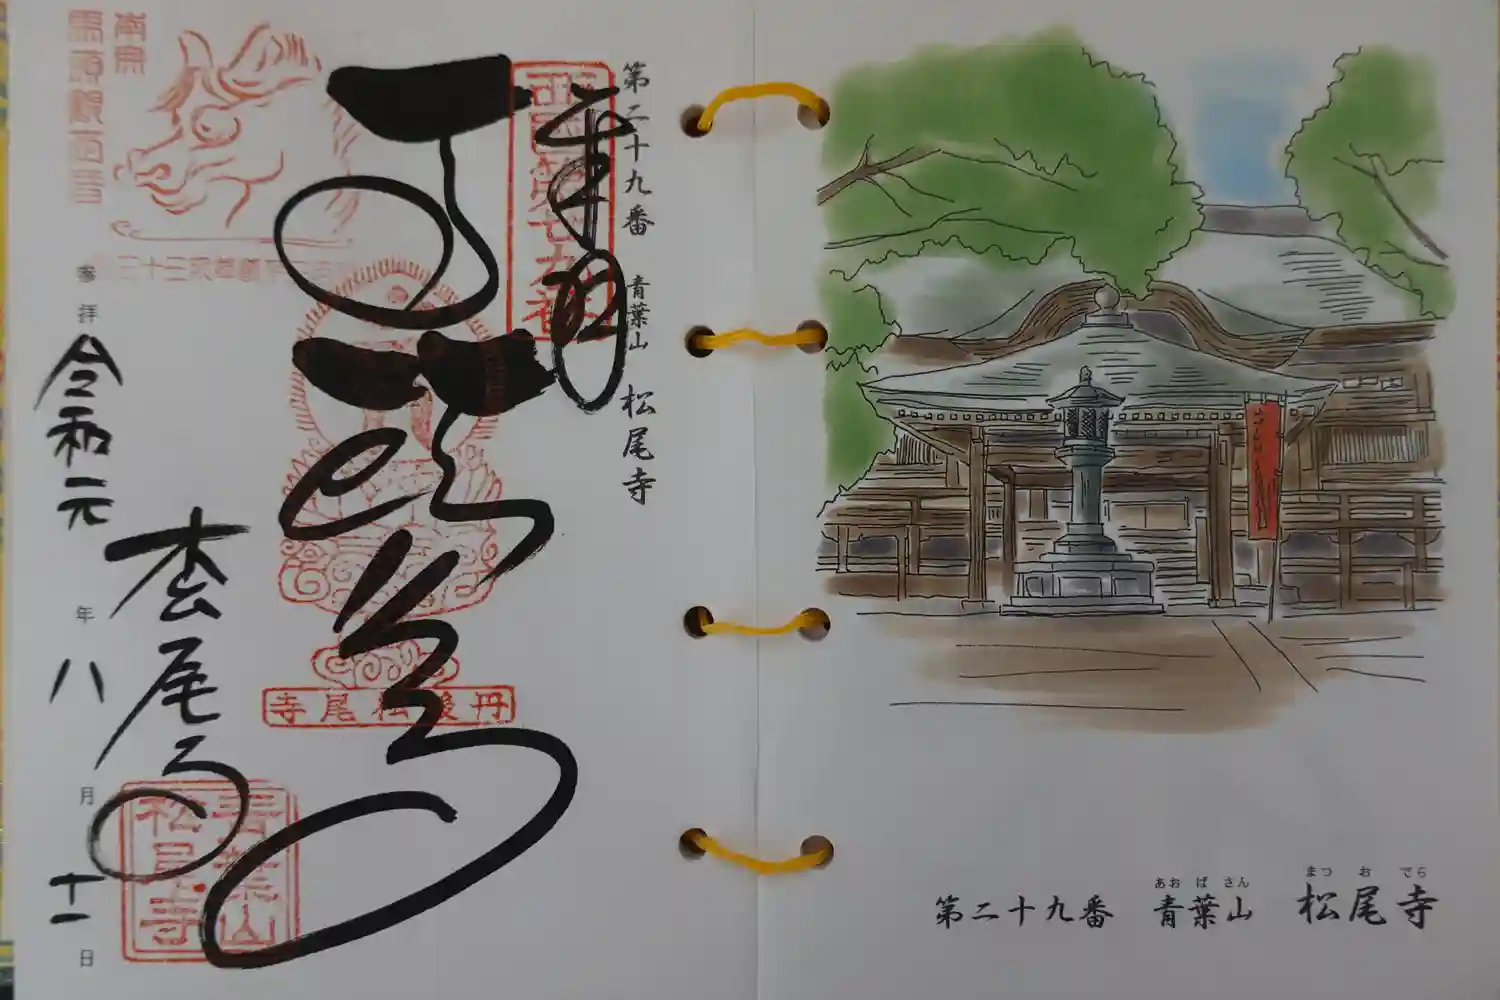 第二十九番 青葉山 松尾寺
奉拝
西国第廿九番
馬頭観世音
丹後松尾寺
松尾寺
青葉山
松尾寺
参拝 令和元年八月十一日
あおばさん まつおでら
第二十九番 青葉山 松尾寺